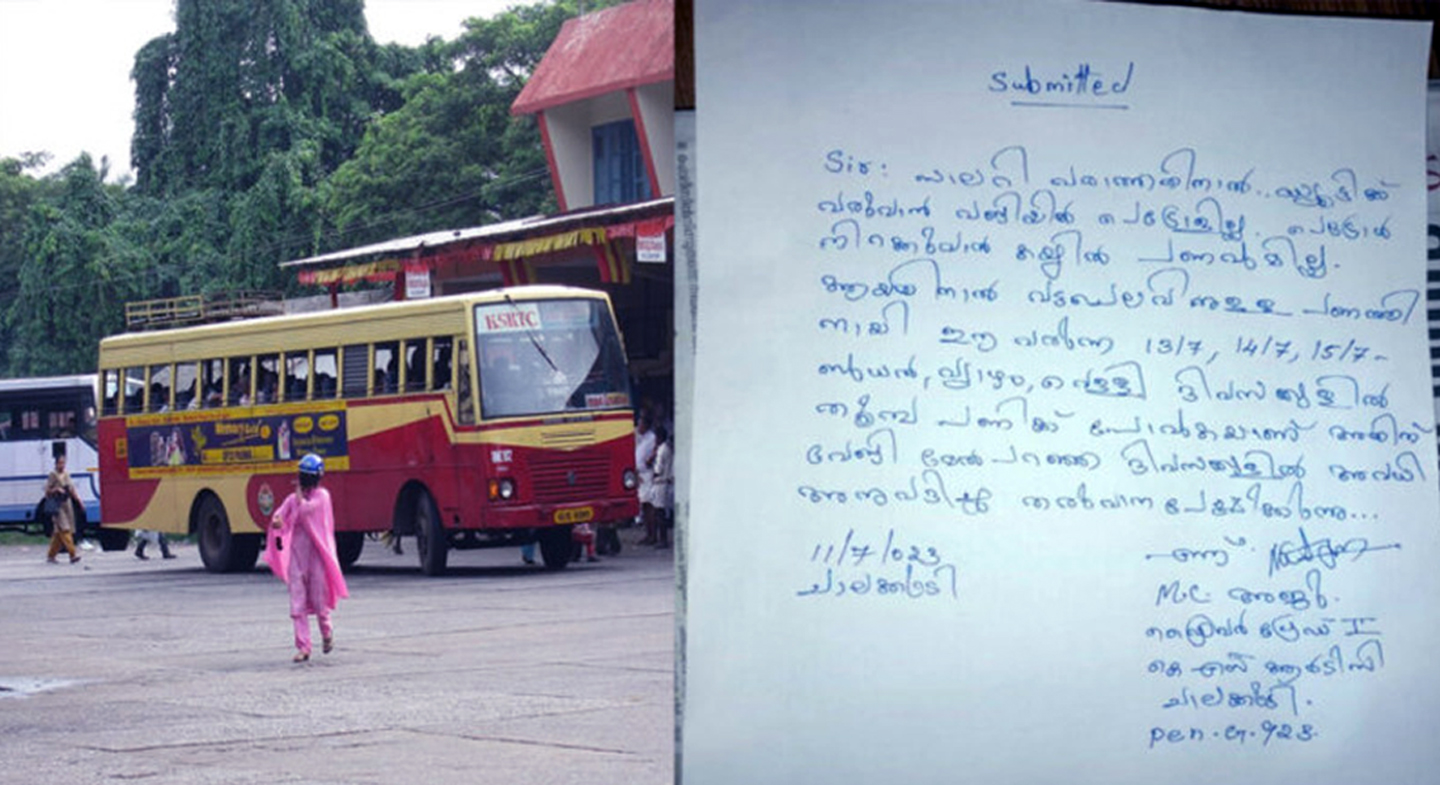 KSRTC
Submitted
Sir: സാലറി വരാത്തതിനാൽ.. ഡ്യൂട്ടിക്ക്
വരുവാൻ വണ്ടിയിൽ പെട്രോളില്ല. പെട്രോൾ
നിറക്കുവാൻ കയ്യിൽ പണവുമില്ല.
ആയതിനാൽ വട്ടചെലവിനുള്ള പണത്തി
നായി ഈ വരുന്ന 13/7, 14/7, 15/7-
ബുധൻ, വ്യാഴം, വെള്ളി ദിവസങ്ങളിൽ
തൂമ്പ പണിക്ക് പോവുകയാണ് അതിന്
വേണ്ടി മേൽപറഞ്ഞ ദിവസങ്ങളിൽ അവധി
അനുവദിച്ചു തരുവാന പേക്ഷിക്കുന്നു...
11/7/023
ചാലക്കുടി
എന്ന്
M.C. അജു.
ഡ്രൈവർ ഗ്രേഡ് II
കെ എസ് ആർടിസി
ചാലക്കുടി.
pen. G. 923.